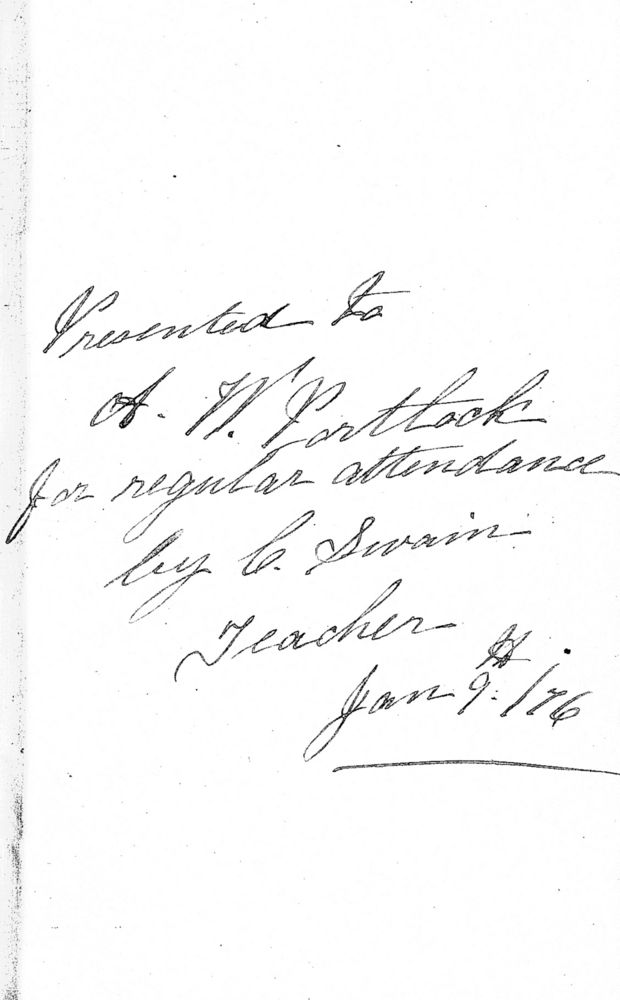 Presented to
A. W. Portlock
for regular attendance
by C. Swain
Teacher
Jan 9th /76